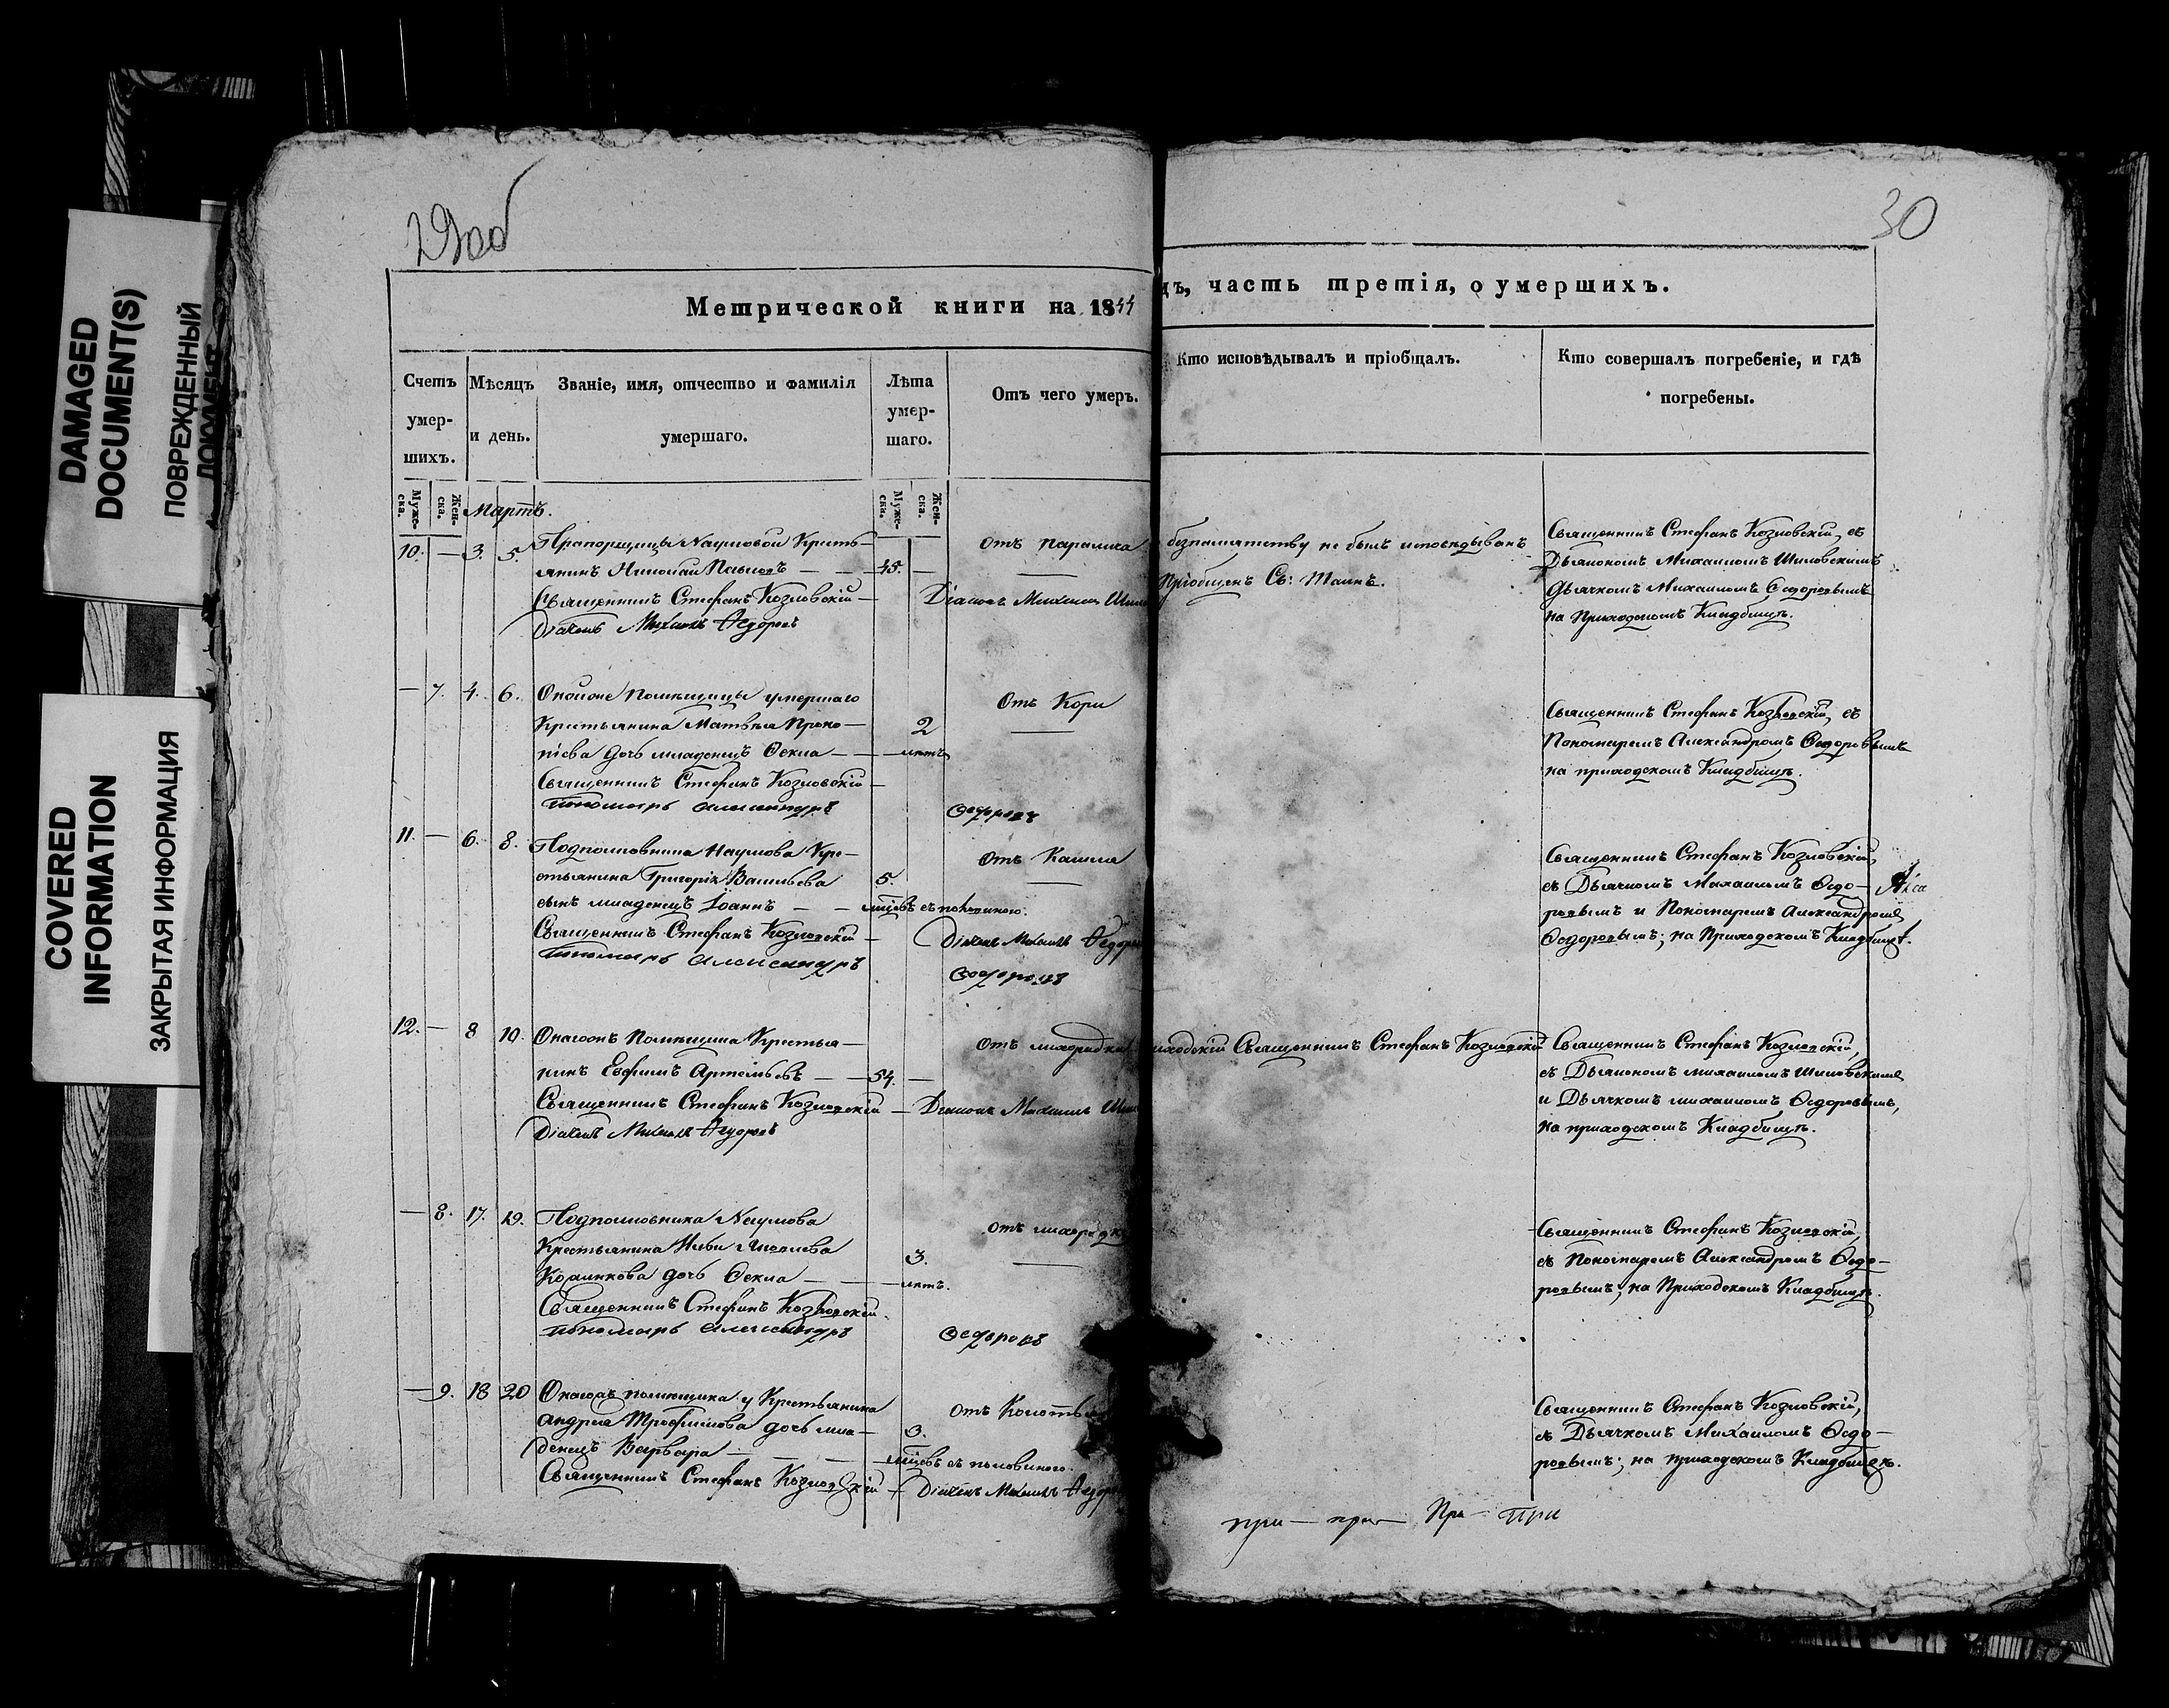 DAMAGED
DOCUMENT(S)
ПОВРЕЖДЕННЫЙ
ДОКУМЕНТ
COVERED
INFORMATION
ЗАКРЫТАЯ ИНФОРМАЦИЯ
29об
30
Метрической книги на 1844
дъ, часть третія, о умершихъ.
Счетъ умер-шихъ.
Мѣсяцъ и день.
Званіе, имя, отчество и фамилія умершаго.
Лѣта умер-шаго.
Отъ чего умеръ.
Кто исповѣдывалъ и пріобщалъ.
Кто совершалъ погребеніе, и гдѣ погребены.
Муже-ска.
Жен-ска.
Муже-ска.
Жен-ска.
Мартъ.
10. — 3. 5. Прапорщицы Наумовой Кресть-
янинъ Николай Павловъ — — 45. —
Отъ паралича
безпамятству не былъ исповѣдыванъ
Пріобщенъ Св: Таинъ.
Священникъ Стефанъ Козловскій, съ
Дьякономъ Михаиломъ Шиловскимъ
Дьячкомъ Михаиломъ Ѳедоровымъ
на Приходскомъ Кладбищѣ.
Священникъ Стефанъ Козловскій —
Діаконъ Михаилъ
Діачекъ Михаилъ Ѳедоровъ
— 7. 4. 6. Оной же помѣщицы умершаго
Крестьянина Матвѣя Проко-
піева дочь младенецъ Ѳекла — —
2
лѣтъ
Отъ Кори
Священникъ Стефанъ Козловскій, съ
Пономаремъ Александромъ Ѳедоровымъ
на приходскомъ Кладбищѣ.
Священникъ Стефанъ Козловскій —
пономарь Александръ
Ѳедоровъ
11. — 6. 8. Подполковника Наумова Кре-
стьянина Григорія Васильева
сынъ младенецъ Іоаннъ — —
5.
мѣсяцовъ съ половиною.
Отъ Кашля
Священникъ Стефанъ Козловскій,
съ Дьячкомъ Михаиломъ Ѳедо-
ровымъ и Пономаремъ Александромъ
Ѳедоровымъ; на Приходскомъ Кладбищѣ.
Священникъ Стефанъ Козловскій —
Діачекъ Михаилъ Ѳедоро
пономарь Александръ
Ѳедоровъ
12. — 8 10. Онагожъ Помѣщика Крестья-
нинъ Евфимъ Артемьевъ — — 54. —
Отъ лихорадки
иходскій Священникъ Стефанъ Козловскій
Священникъ Стефанъ Козловскій,
съ Дьякономъ Михаиломъ Шиловскимъ
и Дьячкомъ Михаиломъ Ѳедоровымъ,
на приходскомъ Кладбищѣ.
Священникъ Стефанъ Козловскій —
Діаконъ Михаилъ
Діачекъ Михаилъ Ѳедоровъ
— 8. 17. 19. Подполковника Наумова
Крестьянина
дочь Ѳекла — —
3.
лѣтъ.
Отъ лихорадки
Священникъ Стефанъ Козловскій,
съ Пономаремъ Александромъ Ѳедо-
ровымъ; на Приходскомъ Кладбищѣ.
Священникъ Стефанъ Козловскій.
пономарь Александръ
Ѳедоровъ
— 9. 18 20 Онагожъ помѣщика у Крестьянина
Андрея Трофимова дочь мла-
денецъ Варвара — — —
3.
мѣсяцовъ съ половиною.
Отъ
Священникъ Стефанъ Козловскій,
съ Дьячкомъ Михаиломъ Ѳедо-
ровымъ; на приходскомъ Кладбищѣ.
Священникъ Стефанъ Козловскій —
Діачекъ Михаилъ Ѳедоро
при — при — При — При